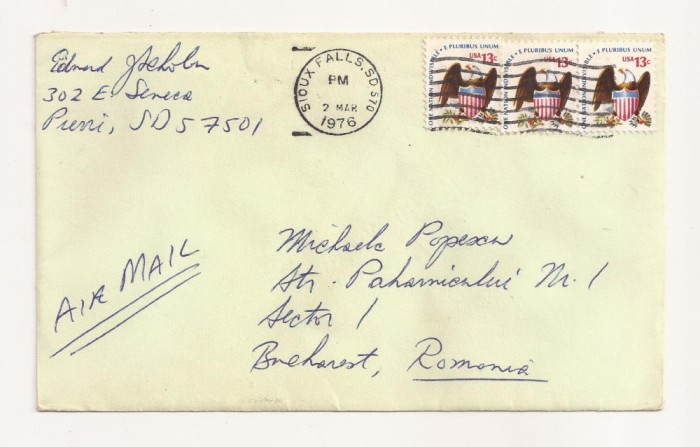 Edward
302 E. Seneca
Pierri, SD 57501
SIOUX FALLS, SD 570
PM
2 MAR
1976
ONE NATION INDIVISIBLE • E PLURIBUS UNUM
USA 13c
ONE NATION INDIVISIBLE • E PLURIBUS UNUM
USA 13c
ONE NATION INDIVISIBLE • E PLURIBUS UNUM
USA 13c
AIR MAIL
Michaele Popescu
Str. Paharnicului Nr. 1
Sector 1
Bucharest, Romania